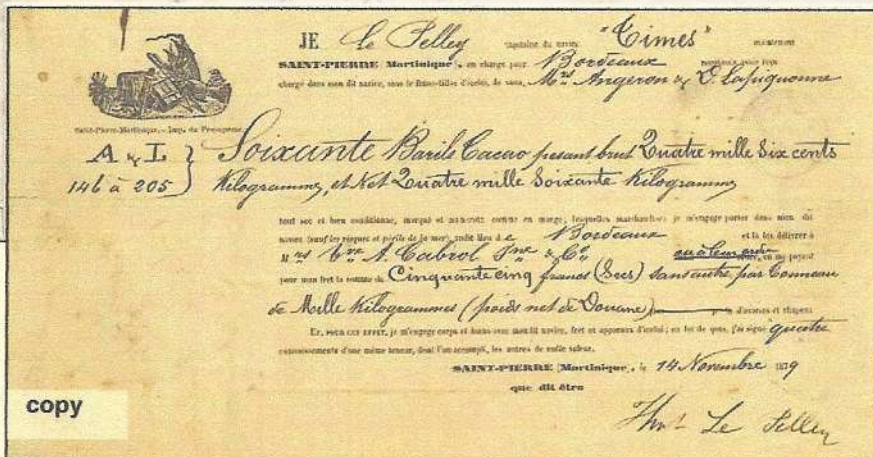 JE Le Pelley capitaine du navire "Times" maintenant
SAINT-PIERRE (Martinique), en charge pour Bordeaux reconnais avoir reçu
chargé dans mon dit navire, sous le franc-tillac d'icelui, de vous, Mrs Angeron & D. Lapiquonne
Saint-Pierre-Martinique. — Imp. du Propagateur
A & L
146 à 205
Soixante Barils Cacao pesant brut Quatre mille Six cents
Kilogrammes, et Net Quatre mille Soixante Kilogrammes
tout sec et bien conditionné, marqué et numéroté comme en marge; lesquelles marchandises je m'engage porter dans mon dit
navire (sauf les risques et périls de la mer) audit lieu de Bordeaux et là les délivrer à
Mrs Vve A. Cabrol Jne & Cie ou à leur ordre en me payant
pour mon fret la somme de Cinquante cinq francs (Secs) sans autre par Tonneau
de Mille Kilogrammes (poids net de Douane) d'avaries et chapeau
ET, POUR CET EFFET, je m'engage corps et biens avec mon dit navire, fret et apparaux d'icelui; en foi de quoi, j'ai signé quatre
connaissements d'une même teneur, dont l'un accompli, les autres de nulle valeur.
SAINT-PIERRE (Martinique), le 14 Novembre 1879
que dit être
Le Pelley
copy